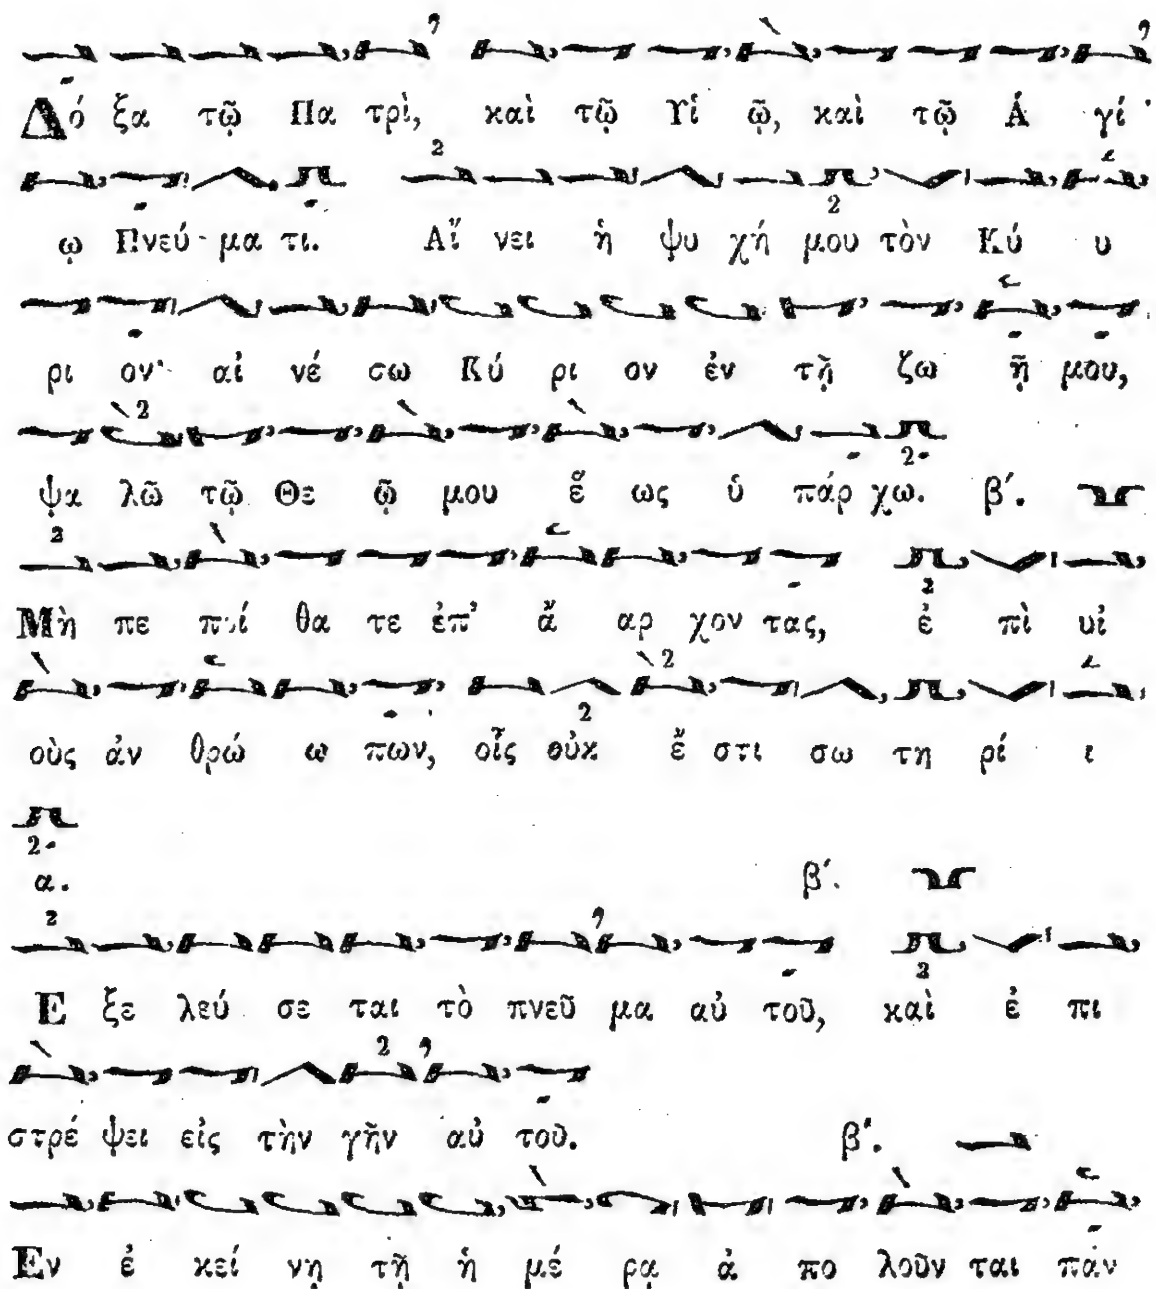 Δό ξα τῷ Πα τρὶ, καὶ τῷ Υἱ ῷ, καὶ τῷ Ἁ γί
ῳ Πνεύ μα τι. Αἴ νει ἡ ψυ χή μου τὸν Κύ υ
ρι ον· αἰ νέ σω Κύ ρι ον ἐν τῇ ζω ῇ μου,
ψα λῶ τῷ Θε ῷ μου ἕ ως ὑ πάρ χω. β΄.
Μὴ πε ποί θα τε ἐπ' ἄ αρ χον τας, ἐ πὶ υἱ
οὺς ἀν θρώ ω πων, οἷς οὐκ ἔ στι σω τη ρί ι
α. β΄.
Ε ξε λεύ σε ται τὸ πνεῦ μα αὐ τοῦ, καὶ ἐ πι
στρέ ψει εἰς τὴν γῆν αὐ τοῦ. β΄.
Εν ἐ κεί νῃ τῇ ἡ μέ ρᾳ ἀ πο λοῦν ται πάν